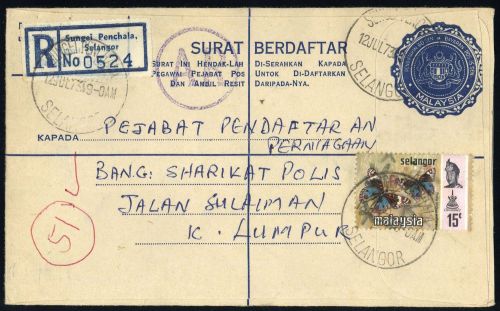 Sungei Penchala,
Selangor
R No 0524
12JUL73 9-0AM
SELANGOR
SURAT BERDAFTAR
Surat Ini Hendak-Lah Di-Serahkan Kapada
Pegawai Pejabat Pos Untok Di-Daftarkan
Dan Ambil Resit Daripada-Nya.
12JUL73
SELANGOR
MALAYSIA
KAPADA
PEJABAT PENDAFTARAN
PERNIAGAAN
BANG: SHARIKAT POLIS
JALAN SULAIMAN
K. LUMPUR
51
selangor
malaysia
15c
0AM
SELANGOR